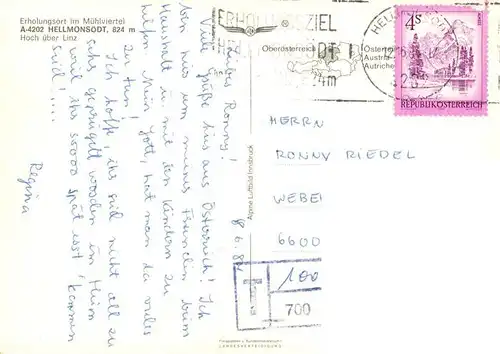 Erholungsort im Mühlviertel
A-4202 HELLMONSÖDT, 824 m
Hoch über Linz
Oberösterreich
Österr
Austria
Autriche
ERHOLUNGSZIEL
4S
REPUBLIK ÖSTERREICH
Liebes Ronny!
Viele Grüße aus Österreich! Ich
bin hier um meiner Freundin beim
Haushalt u. mit den Kindern zu
helfen. Mein Gott, hat man da vieles
zu tun!
Ich hoffe, ihr seid nicht all zu
sehr geprügelt worden im Heim
weil ihr soooo spät erst kommen
seid!....
Regina
8.6.84
HERRN
RONNY RIEDEL
WEBE
6600
T
100
700
Alpine Luftbild Innsbruck
LANDESVERTEIDIGUNG